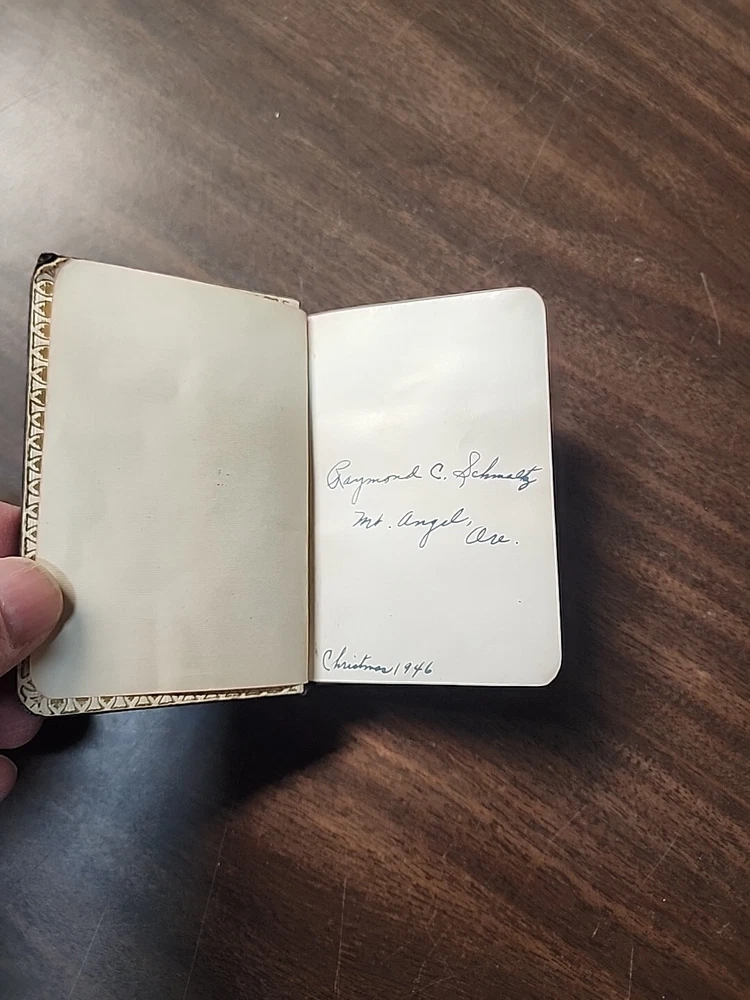 Raymond C. Schmaltz
Mt. Angel,
Ore.
Christmas 1946